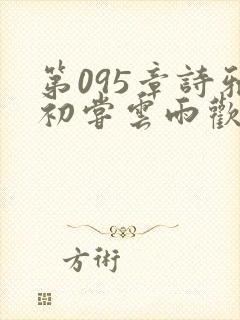 第095章詩雅
初嘗雲雨歡
方術